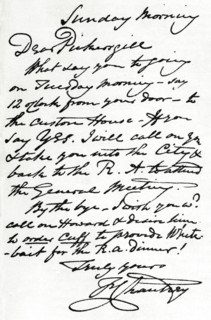 Sunday Morning
Dear Pickersgill
What say you to going
on Tuesday morning - say
12 o'clock from your door - to
the Custom House - If you
say YES. I will call on you
& take you into the City &
back to the R. A. to attend
the General Meeting.
By the bye - I wish you'd
call on Howard & desire him
to order Cuff to provide White-
bait for the R.A. dinner!
Truly yours